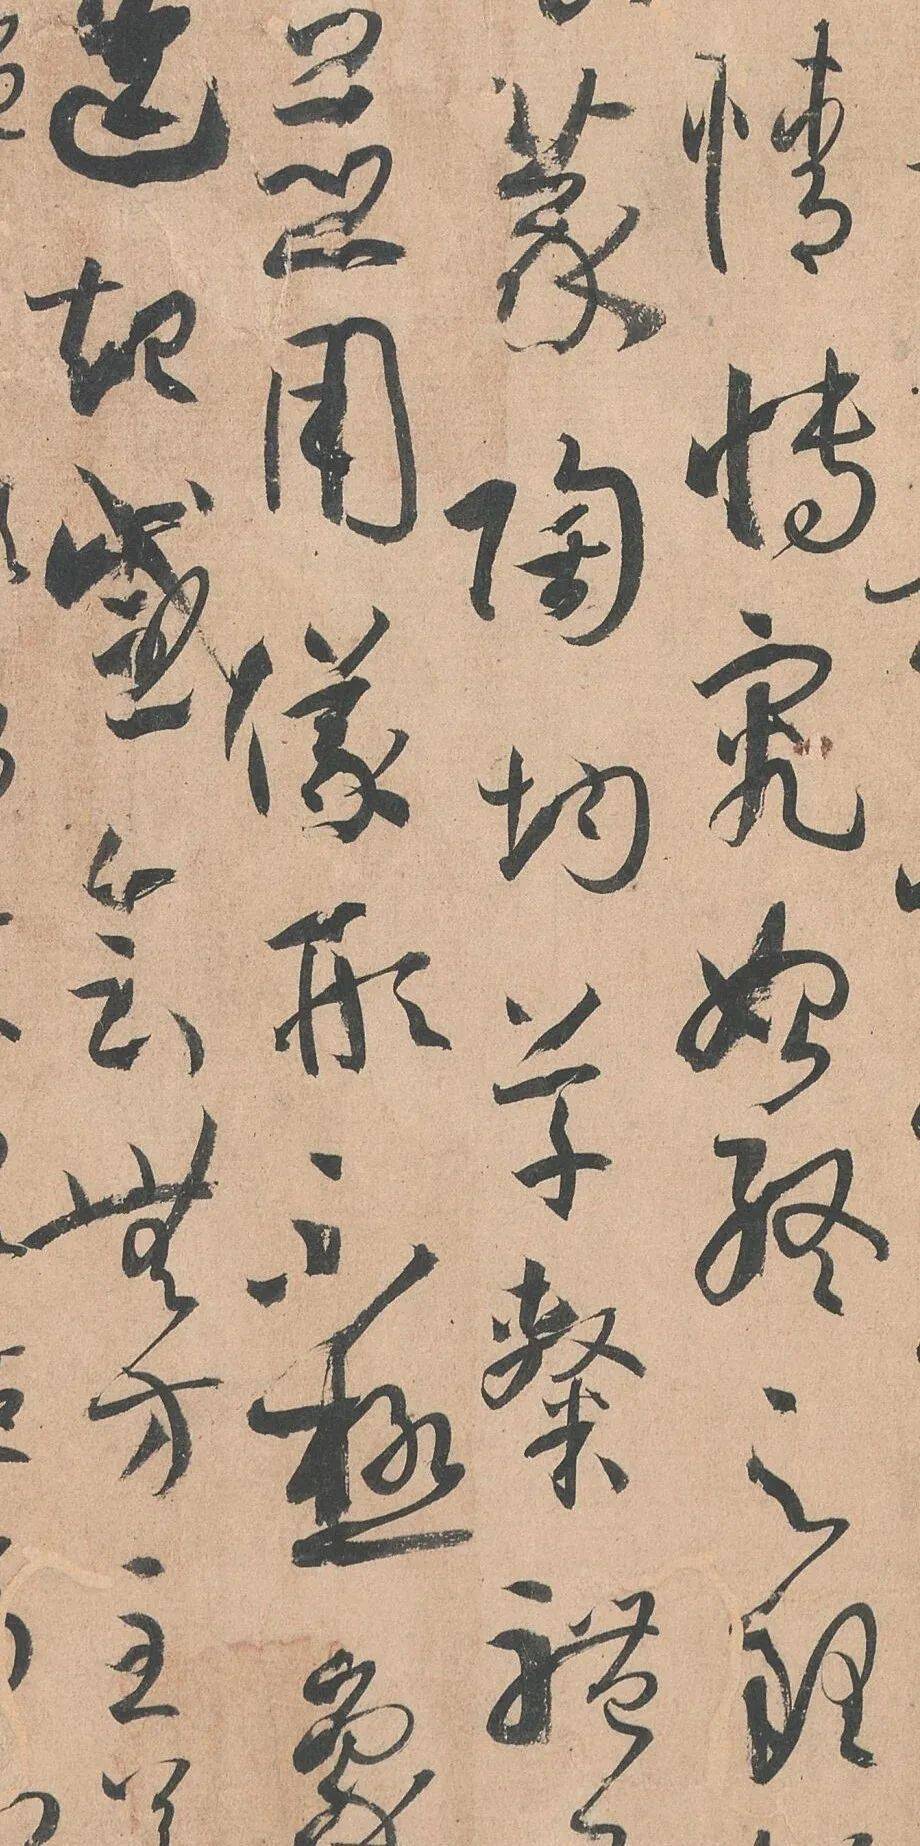 情博究始終之理
篆陶均草隸體
並用儀形不極象
迭起感會無方至